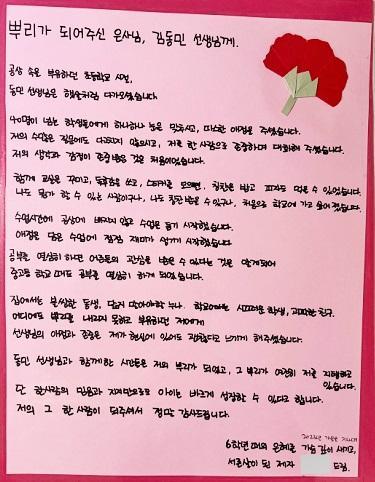 뿌리가 되어주신 은사님, 김동민 선생님께.
공상 속을 부유하던 초등학교 시절,
동민 선생님은 햇살처럼 다가오셨습니다.
40명이 넘는 학생들에게 하나하나 눈을 맞추시고, 따스한 애정을 주셨습니다.
저의 수많은 질문에도 다그치지 않으시고, 저를 한 사람으로 존중하며 대화해 주셨습니다.
저의 생각과 감정이 존중받은 것은 처음이었습니다.
함께 교실을 꾸미고, 독후감을 쓰고, 스티커를 모으면, 칭찬을 받고 피자도 먹을 수 있었습니다.
나도 뭔가 할 수 있는 사람이구나, 나도 칭찬 받을 수 있구나, 처음으로 학교에 가고 싶어졌습니다.
수업시간에 공상에 빠지지 않고 수업을 듣기 시작했습니다.
애정을 담은 수업에 점점 재미가 생기기 시작했습니다.
공부를 열심히 하면 어른들의 관심을 받을 수 있다는 것을 알게되어
중고등 학교 때도 공부를 열심히 하게 되었습니다.
집에서는 동생, 맏이 누나. 학교에서는 시끄러운 학생, 친구.
어디에도 뿌리를 내리지 못하고 부유하던 저에게
선생님의 애정과 존중은 제가 현실에 있어도 괜찮다고 느끼게 해주셨습니다.
동민 선생님과 함께한 시간들은 저의 뿌리가 되었고, 그 뿌리가 여전히 저를 지탱하고
있습니다.
단 한사람의 믿음과 지지만으로도 아이는 바르게 성장할 수 있다고 합니다.
저의 그 한 사람이 되어주셔서 정말 감사드립니다.
6학년 때의 은혜를 가슴 깊이 새기고,
서른살이 된 제자 드림.